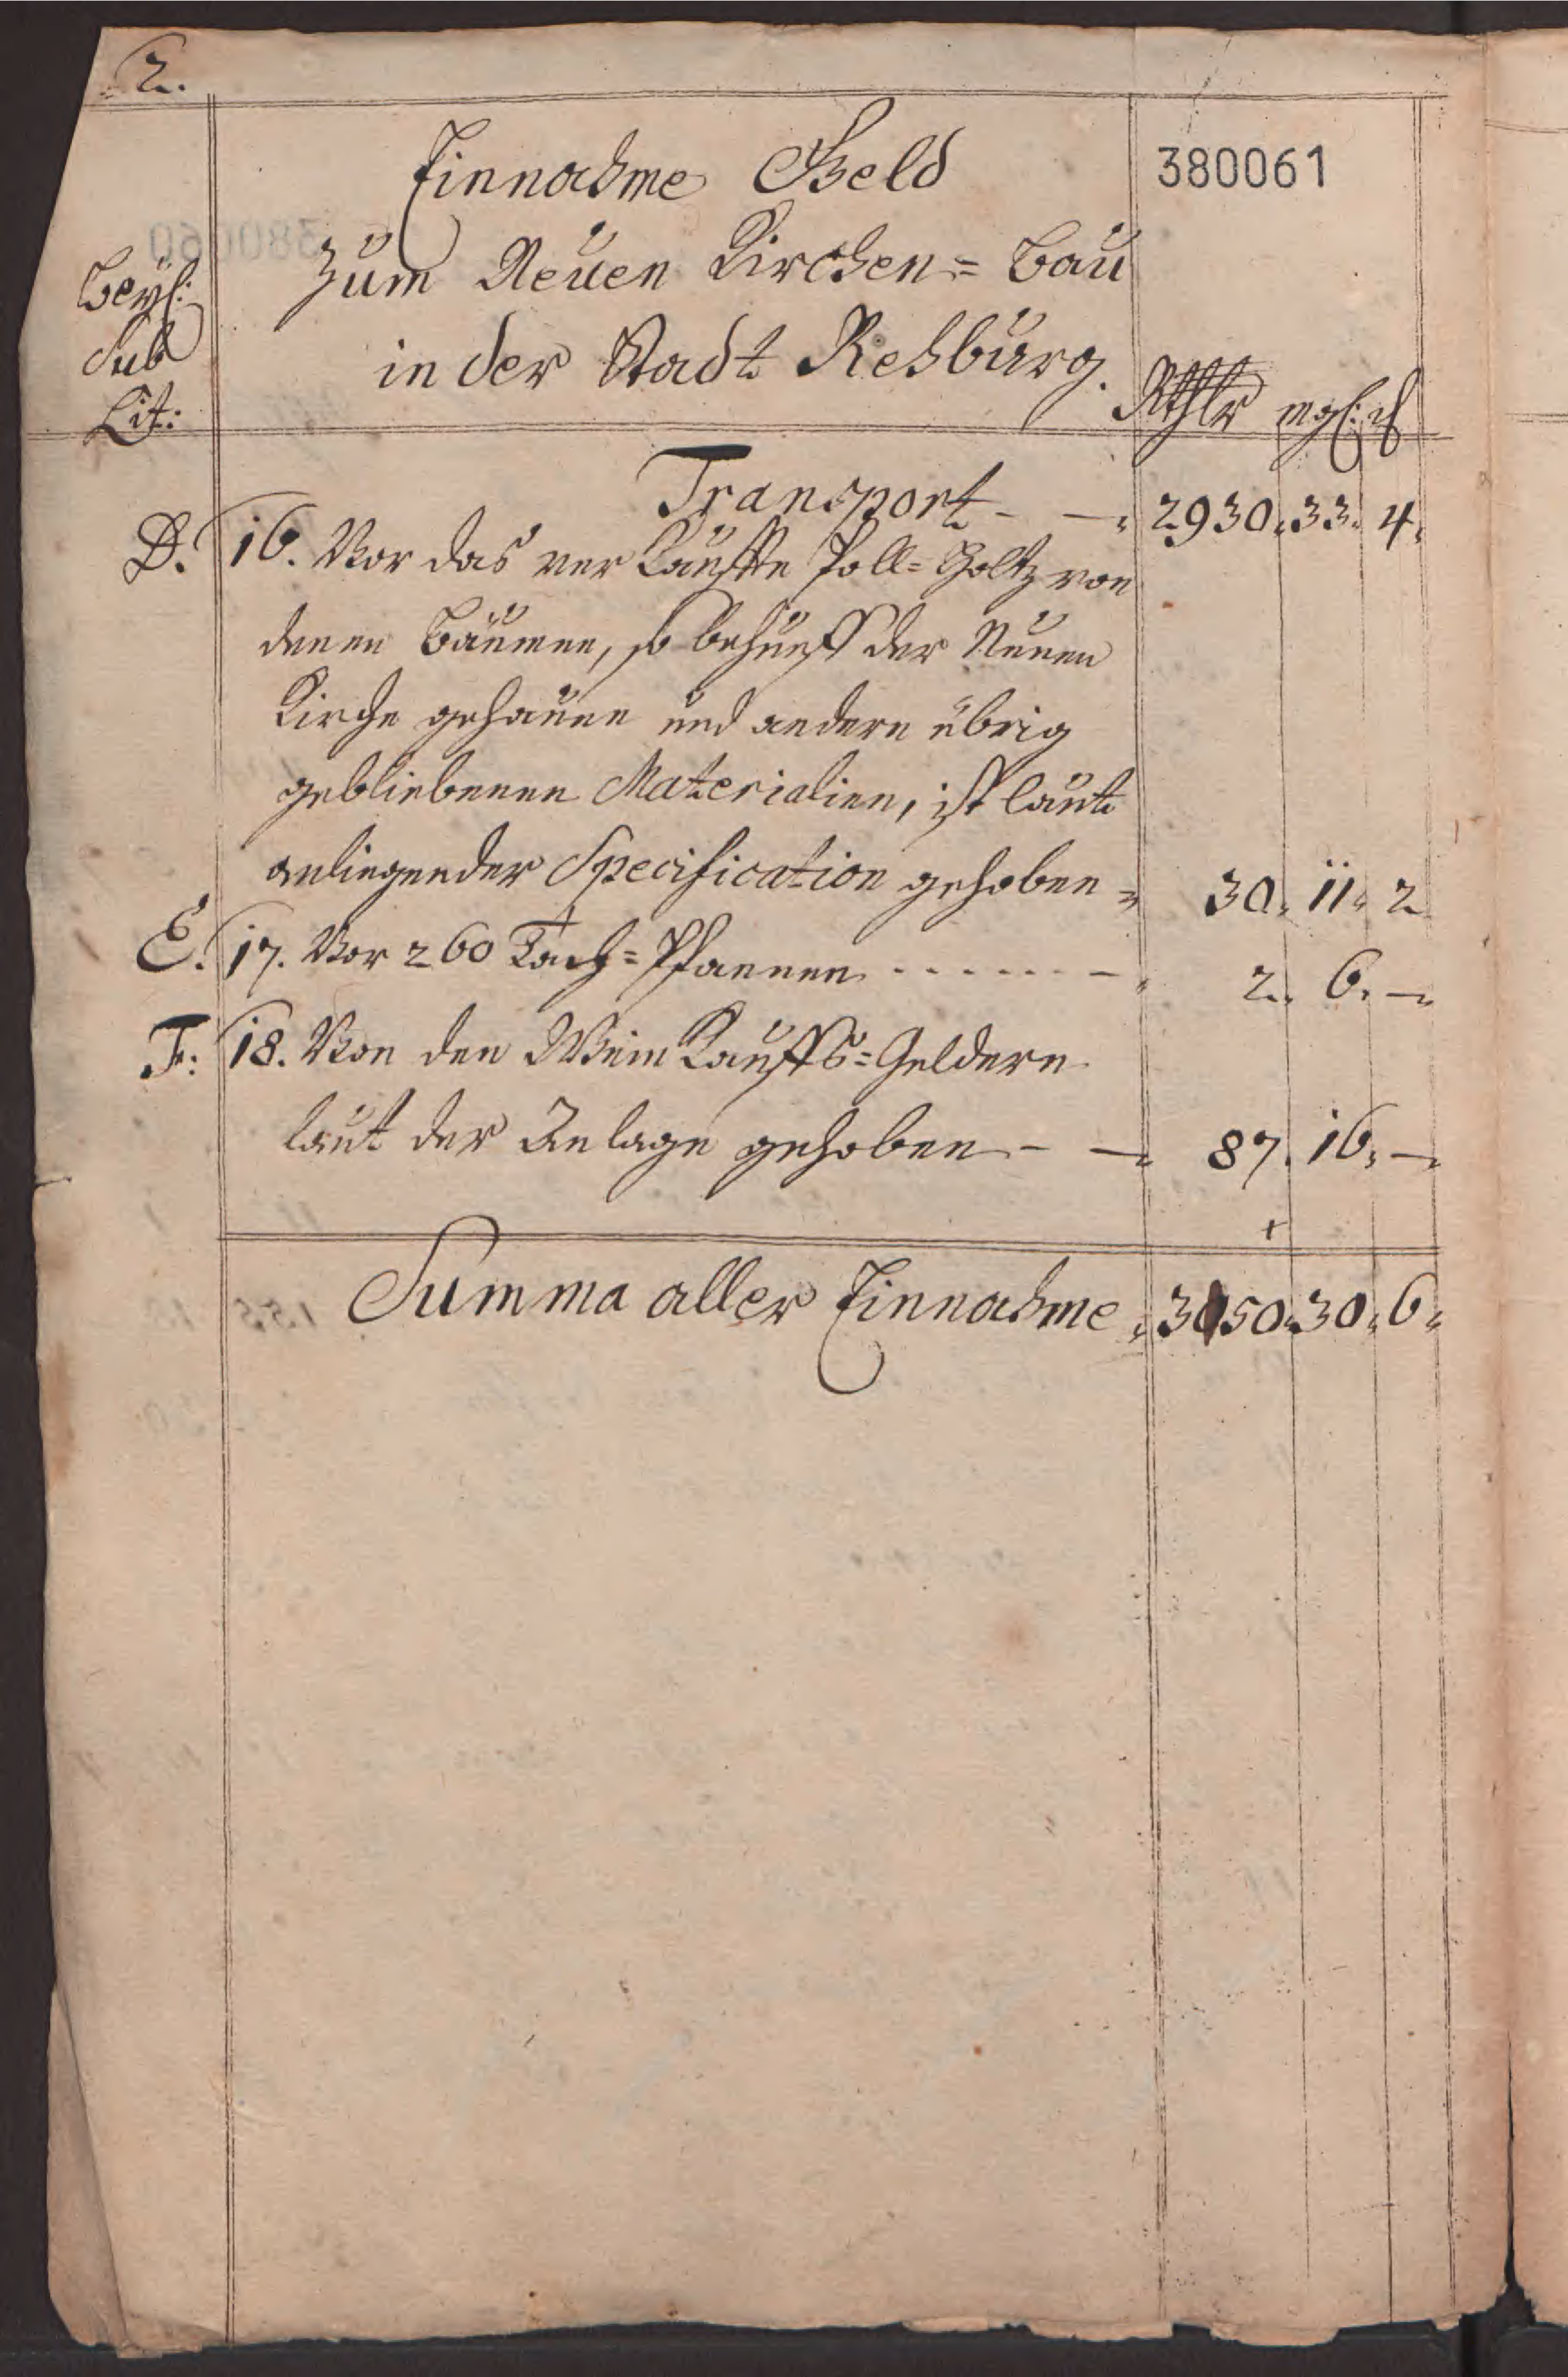 2.
Einnahme Geld
380061
Zum Neuen Kirchen= Bau
Beyl:
Sub
Lit:
in der Stadt Rehburg.
Rthlr mgl: ₰
Transport - — 2930. 33. 4.
D. 16. Vor das verkauffte Poll=Holtz von
denen Bäumen, so behueff der Neuen
Kirche gehauen und andern übrig
gebliebenen Materialien, ist laut
anliegender Specification gehoben = 30. 11. 2
E. 17. Vor 260 Dach=Pfannen - - - - - - - 2. 6. —
F. 18. Von den WeinKauffs=Geldern
laut der Anlage gehoben - — 87. 16. —
Summa aller Einnahme 3050. 30. 6.